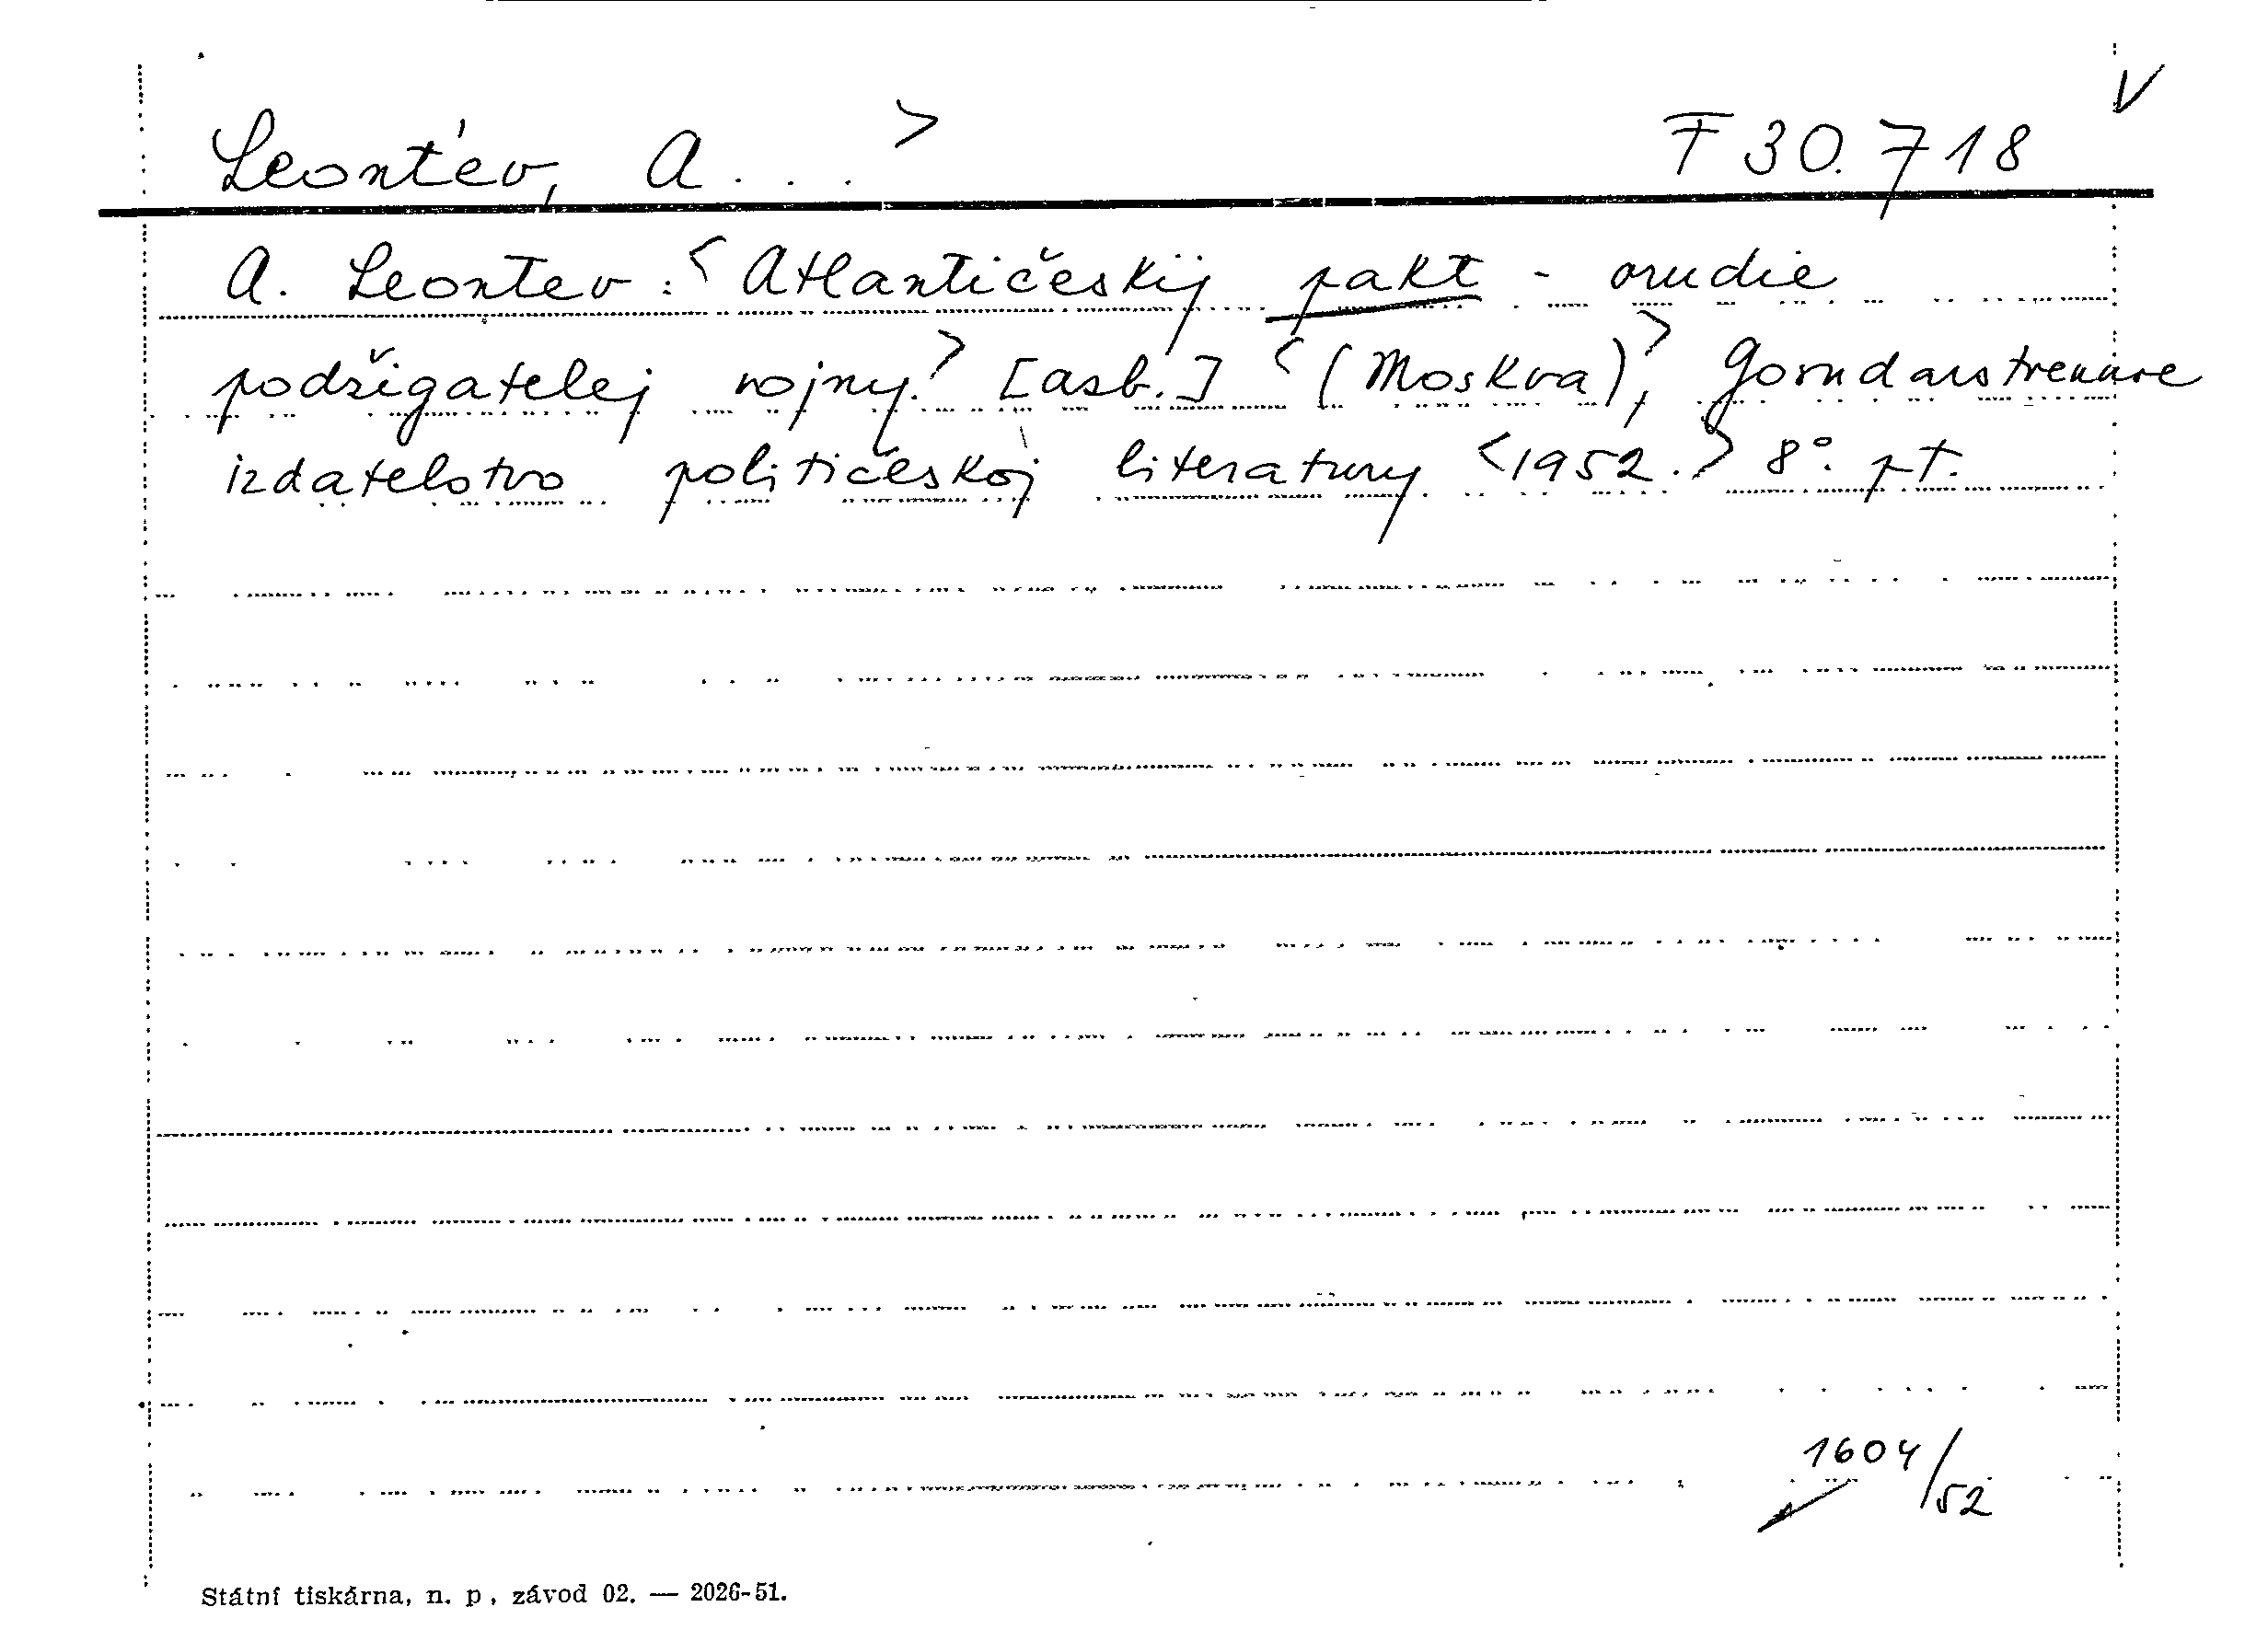 Leont'ev, A . . . > F 30.718 V
A. Leontev : < Atlantičeskij pakt - orudie
podžigatelej vojny. > [asb.] < (Moskva), > Gosudarstvennoe
izdatelstvo političeskoj literatury <1952.> 8°. pt.
1604/52
Státní tiskárna, n. p., závod 02. — 2026-51.